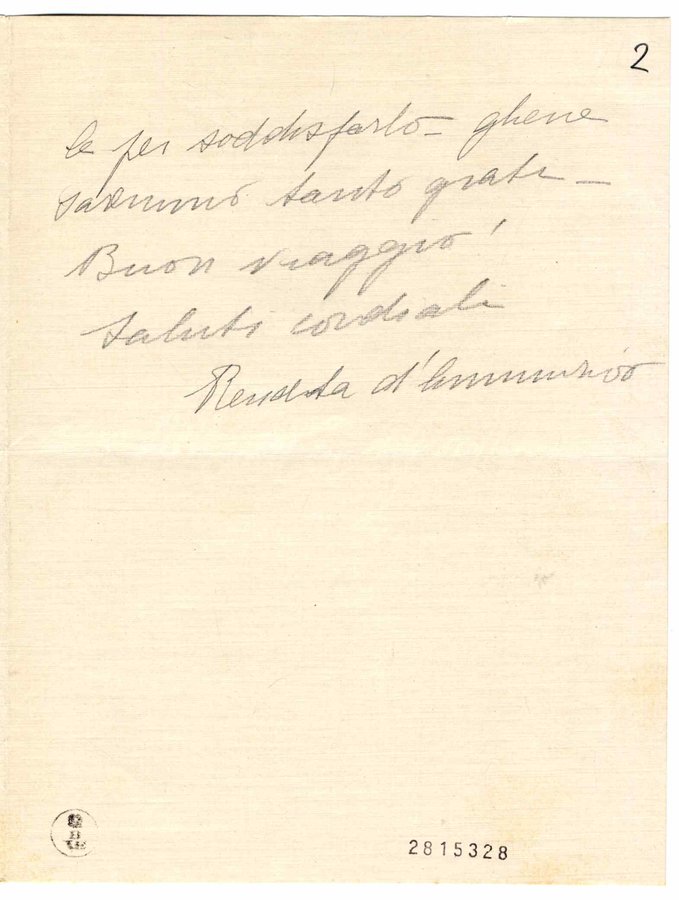 2
le per soddisfarlo – gliene
saremmo tanto grati –
Buon viaggio!
Saluti cordiali
Renata d'Annunzio
2815328